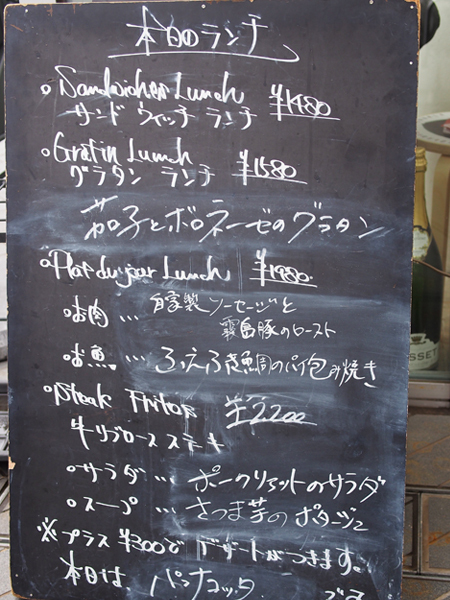 本日のランチ
。Sandwiches Lunch ¥1480
サンドウィッチ ランチ
。Gratin Lunch ¥1580
グラタン ランチ
茄子とボロネーゼのグラタン
。Plat du jour Lunch ¥1980
お肉… 自家製ソーセージと
霧島豚のロースト
お魚… ふえふき鯛のパイ包み焼き
。Steak Frites ¥2200
牛リブロース ステーキ
。サラダ… ポークリエットのサラダ
。スープ… さつま芋のポタージュ
※プラス¥300でデザートがつきます。
本日は、パンナコッタ
SSET